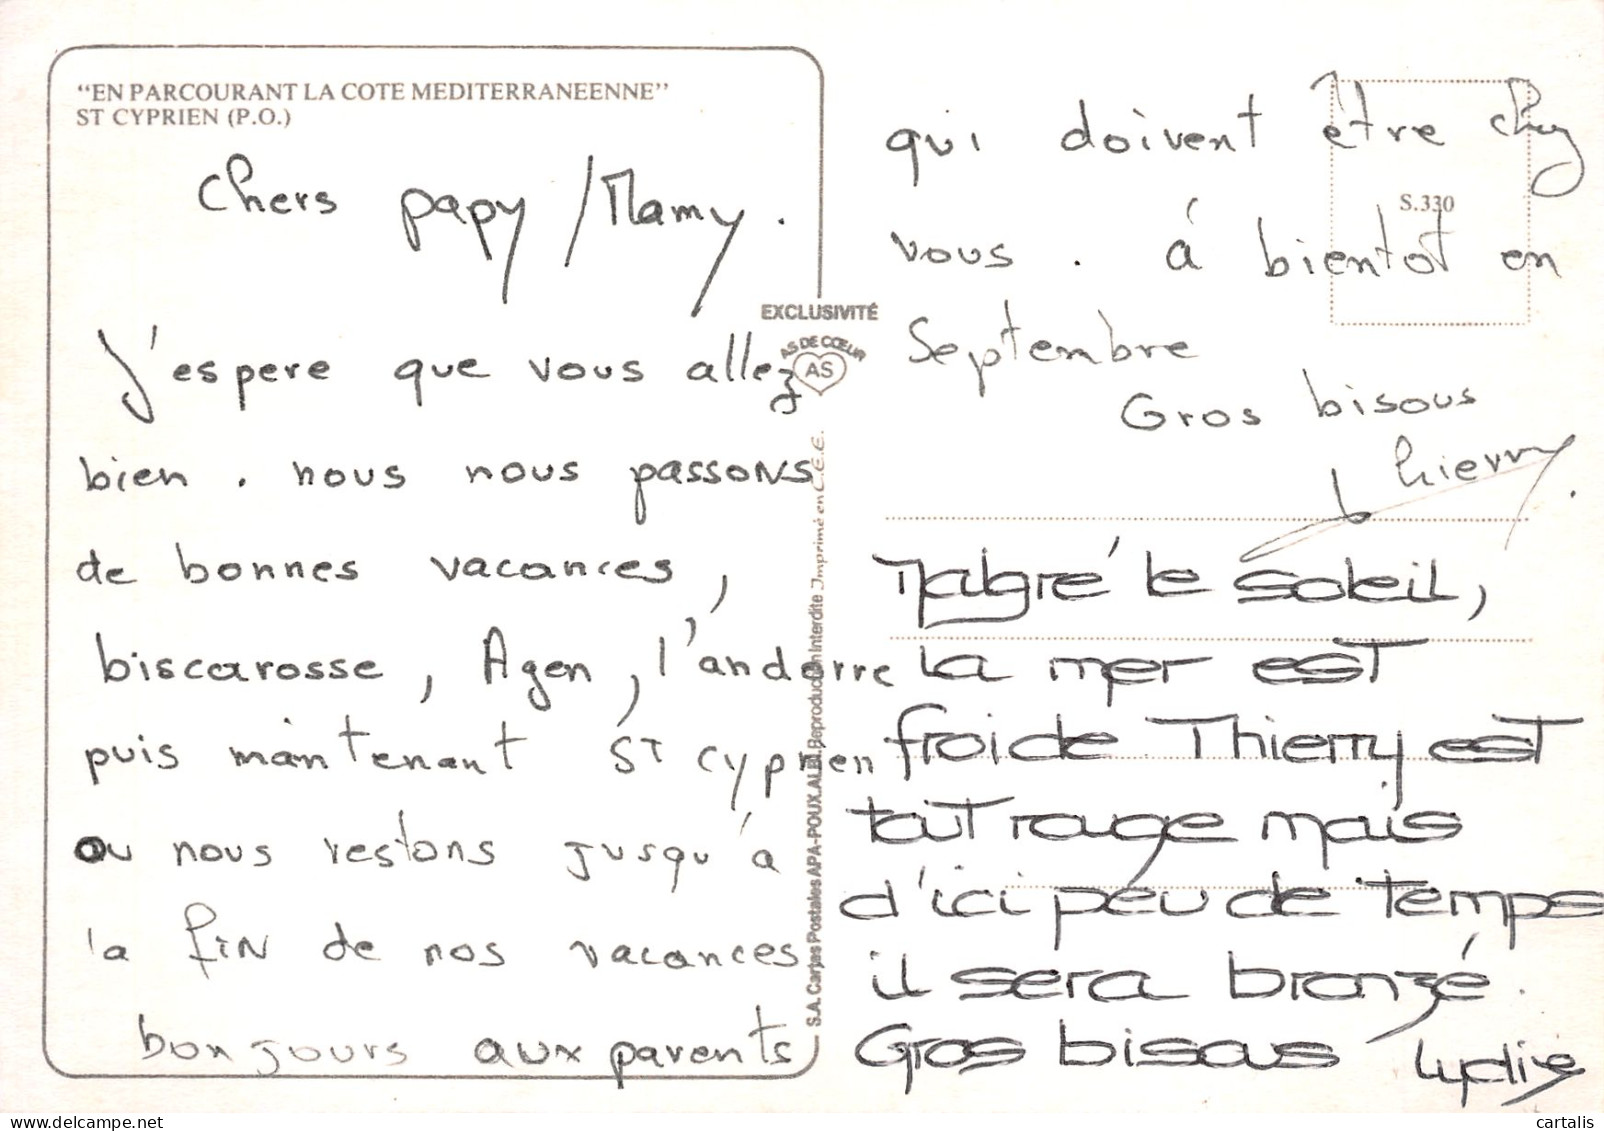 "EN PARCOURANT LA COTE MEDITERRANEENNE"
ST CYPRIEN (P.O.)
Chers papy / Mamy.
J'espere que vous allez
bien. nous nous passons
de bonnes vacances,
biscarosse, Agen, l'andorre
puis maintenant St cyprien
ou nous restons jusqu'à
la fin de nos vacances
bonjours aux parents
EXCLUSIVITÉ
AS DE CŒUR
AS
S.A. Cartes Postales APA-POUX. ALBI. Reproduction Interdite Imprimé en C.E.E.
S.330
qui doivent être chez
vous. á bientot en
Septembre
Gros bisous
Thierry.
Malgré le soleil,
la mer est
froide Thierry est
tout rouge mais
d'ici peu de temps
il sera bronzé.
Gros bisous Lydie
cartalis